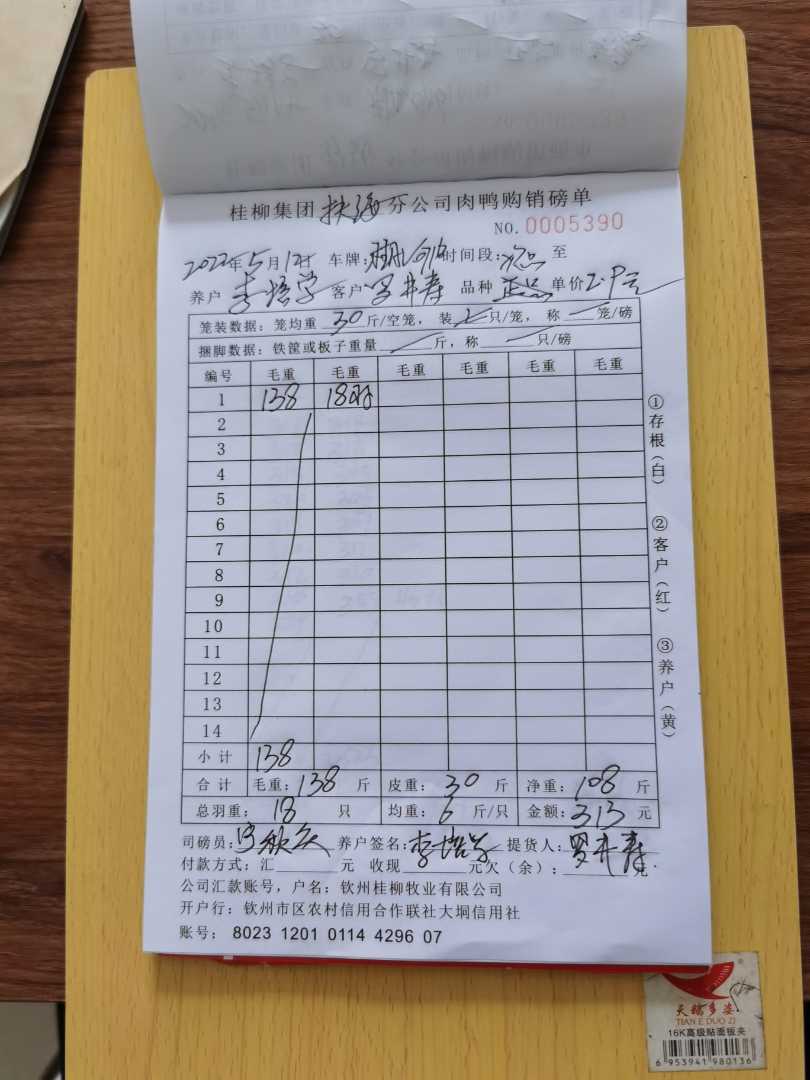 桂柳集团 扶海 分公司肉鸭购销磅单
NO.0005390
2022年5月12日 车牌: 时间段: 至
养户 李培学 客户 罗井寿 品种 正品 单价 2.9元
笼装数据: 笼均重 30 斤/空笼, 装 只/笼, 称 笼/磅
捆脚数据: 铁筐或板子重量 斤, 称 只/磅
编号 毛重 毛重 毛重 毛重 毛重 毛重
1 138 18羽
2
3
4
5
6
7
8
9
10
11
12
13
14
小计 138
合计 毛重: 138 斤 皮重: 30 斤 净重: 108 斤
总羽重: 18 只 均重: 6 斤/只 金额: 313 元
司磅员: 养户签名: 李培学 提货人: 罗井寿
付款方式: 汇 元 收现 元欠(余): 元
公司汇款账号, 户名: 钦州桂柳牧业有限公司
开户行: 钦州市区农村信用合作联社大垌信用社
账号: 8023 1201 0114 4296 07
①存根(白)
②客户(红)
③养户(黄)
天鹅多姿
TIAN E DUO ZI
16K高级贴面板夹
6 953941 980136